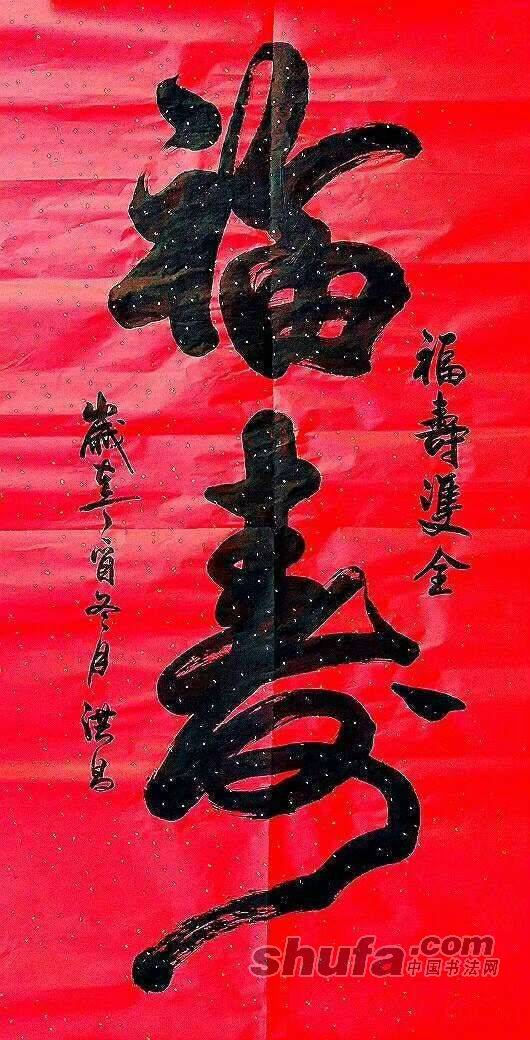 福壽
福壽雙全
歲在丁酉冬月 洪昌
shufa.com
中国书法网